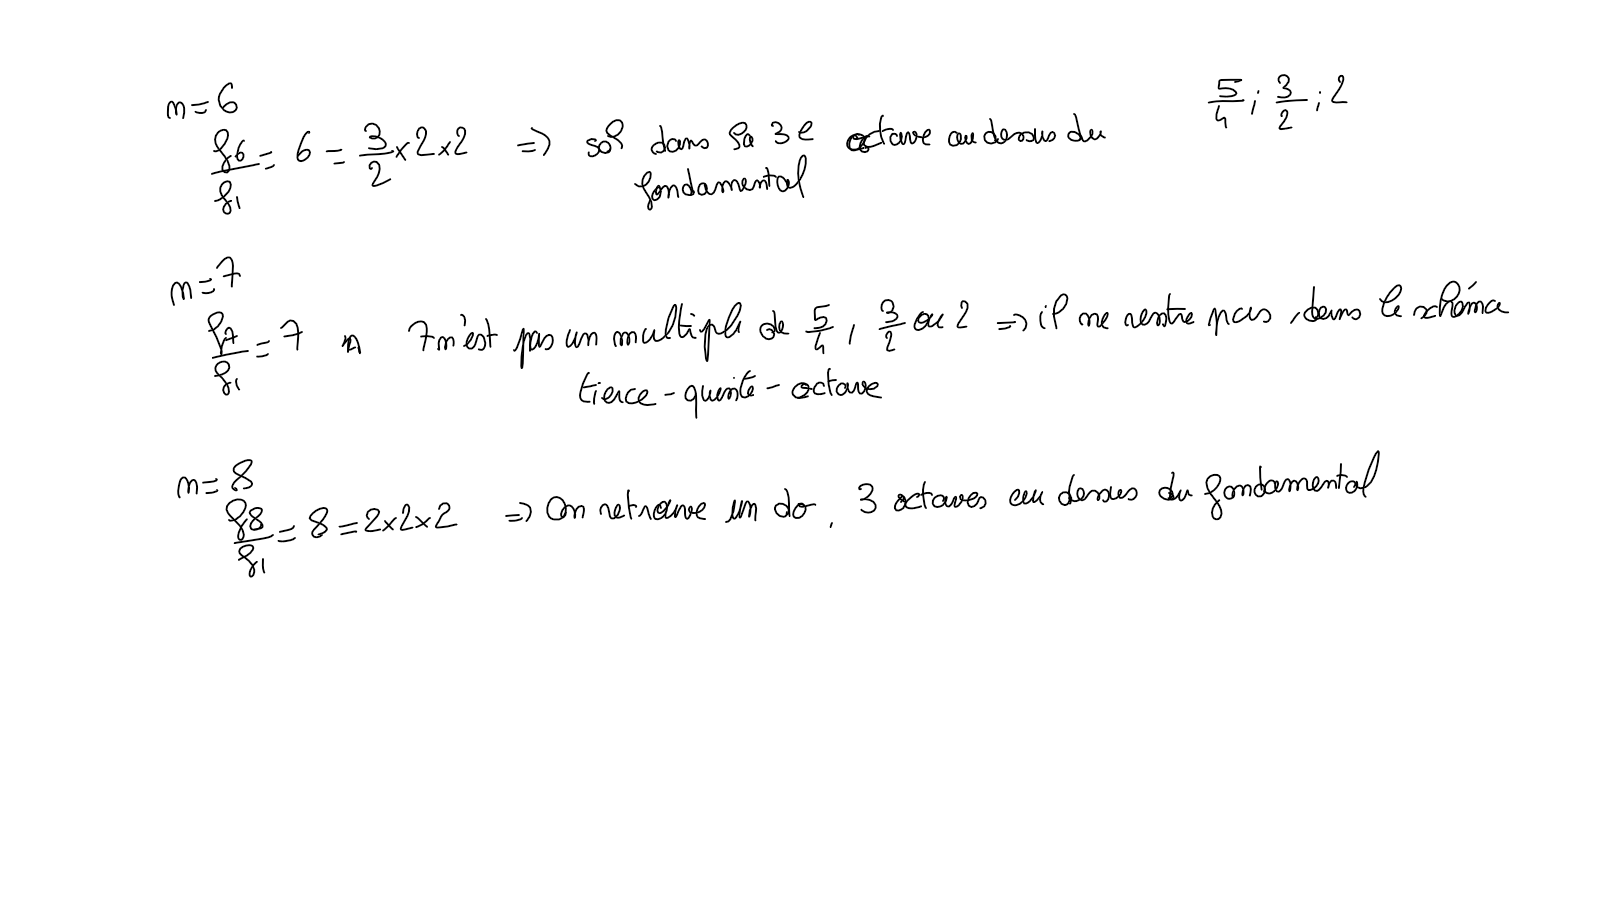 n=6
5/4 ; 3/2 ; 2
f6/f1 = 6 = 3/2 × 2 × 2 => sol dans la 3e octave au dessus du
fondamental
n=7
f7/f1 = 7 n 7 n'est pas un multiple de 5/4 , 3/2 ou 2 => il ne rentre pas , dans le schéma
tierce - quinte - octave
n=8
f8/f1 = 8 = 2×2×2 => On retrouve un do , 3 octaves au dessus du fondamental